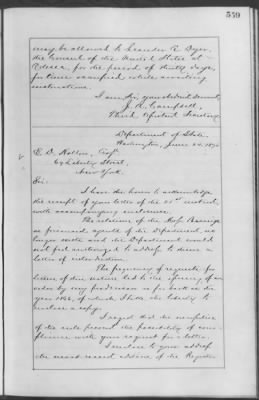 559
may be allowed to Leander E. Dyer,
the Consul of the United States at
Odessa, for the period of thirty days,
for time sacrificed while awaiting
instructions.
I am, Sir, your obedient servant,
J. A. Campbell,
Third Assistant Secretary.
Department of State
Washington, June 24, 1876
E. D. Esqr.
64 Liberty Street,
New York.
Sir:
I have the honor to acknowledge
the receipt of your letter of the 21st instant,
with accompanying enclosure.
The relations of the
as financial agents of the Department no
longer exist and the Department would
not feel authorized to address to them a
letter of introduction.
The frequency of requests for
letters of this nature led to the issuing of an
order by my predecessor as far back as the
year 1866, of which I take the liberty to
enclose a copy.
I regret that the
of the rule prevent the possibility of com-
pliance with your request for a letter.
I enclose to your address
the record of the